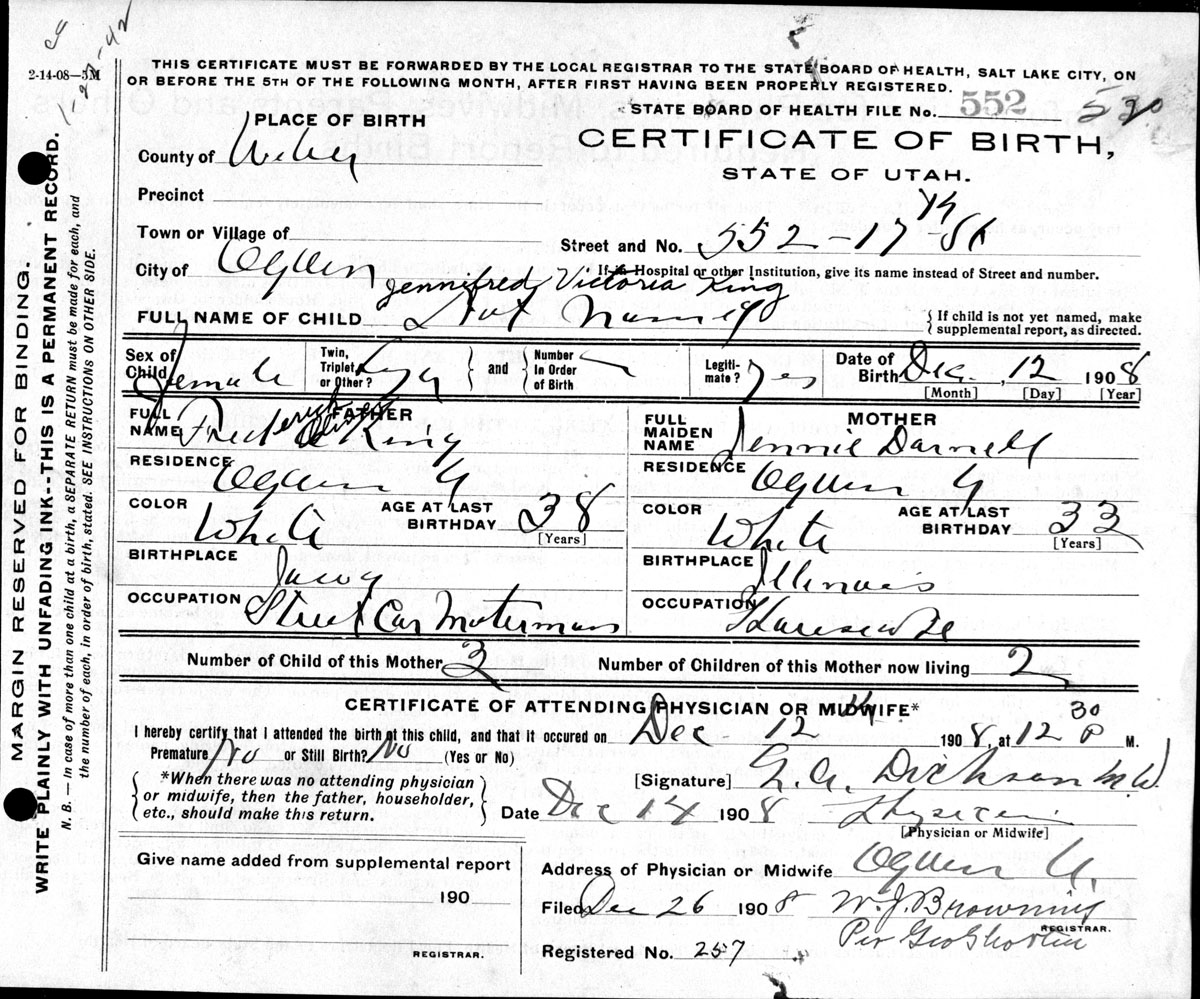 2-14-08—5M
THIS CERTIFICATE MUST BE FORWARDED BY THE LOCAL REGISTRAR TO THE STATE BOARD OF HEALTH, SALT LAKE CITY, ON
OR BEFORE THE 5TH OF THE FOLLOWING MONTH, AFTER FIRST HAVING BEEN PROPERLY REGISTERED.
STATE BOARD OF HEALTH FILE No. 552 530
PLACE OF BIRTH
CERTIFICATE OF BIRTH,
STATE OF UTAH.
County of Weber
Precinct
Town or Village of
Street and No. 552-17th St
City of Ogden
If in Hospital or other Institution, give its name instead of Street and number.
Jennifred Victoria King
FULL NAME OF CHILD Not Named
{ If child is not yet named, make
supplemental report, as directed.
Sex of Child Female
Twin, Triplet, or Other?
and
Number in Order of Birth
Legitimate? Yes
Date of Birth Dec. 12 1908
[Month] [Day] [Year]
FATHER
FULL NAME Frederick Oliver King
RESIDENCE Ogden U
COLOR White
AGE AT LAST BIRTHDAY 38
[Years]
BIRTHPLACE
OCCUPATION Street Car Motorman
MOTHER
FULL MAIDEN NAME Jennie Darnell
RESIDENCE Ogden U
COLOR White
AGE AT LAST BIRTHDAY 33
[Years]
BIRTHPLACE Illinois
OCCUPATION
Number of Child of this Mother 3
Number of Children of this Mother now living 2
CERTIFICATE OF ATTENDING PHYSICIAN OR MIDWIFE*
I hereby certify that I attended the birth of this child, and that it occured on Dec 12th 1908, at 12 30 P M.
Premature No or Still Birth? No (Yes or No)
*When there was no attending physician
or midwife, then the father, householder,
etc., should make this return.
[Signature] Dickson M.D.
Date Dec 14 1908 Physician
[Physician or Midwife]
Give name added from supplemental report
190
REGISTRAR.
Address of Physician or Midwife Ogden U.
Filed Dec 26 1908 W. J. Browning
REGISTRAR.
Per Geo
Registered No. 257
MARGIN RESERVED FOR BINDING.
WRITE PLAINLY WITH UNFADING INK--THIS IS A PERMANENT RECORD.
N. B. — In case of more than one child at a birth, a SEPARATE RETURN must be made for each, and
the number of each, in order of birth, stated. SEE INSTRUCTIONS ON OTHER SIDE.